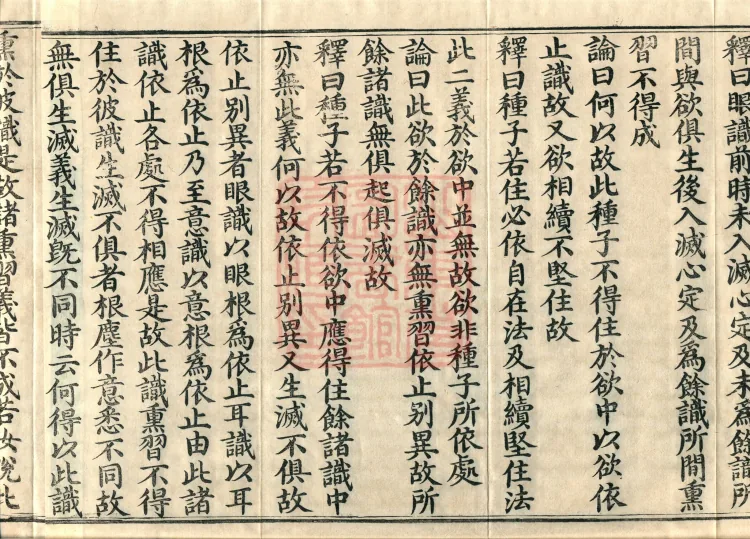 釋曰眼識前時未入滅心定及未爲餘識所
間與欲俱生後入滅心定及爲餘識所間熏
習不得成
論曰何以故此種子不得住於欲中以欲依
止識故又欲相續不堅住故
釋曰種子若住必依自在法及相續堅住法
此二義於欲中並無故欲非種子所依處
論曰此欲於餘識亦無熏習依止别異故所
餘諸識無俱起俱滅故
釋曰種子若不得依欲中應得住餘諸識中
亦無此義何以故依止别異又生滅不俱故
依止别異者眼識以眼根爲依止耳識以耳
根爲依止乃至意識以意根爲依止由此諸
識依止各處不得相應是故此識熏習不得
住於彼識生滅不俱者根塵作意悉不同故
無俱生滅義生滅旣不同時云何得以此識
熏於彼識是故諸熏習義皆不成若汝說此